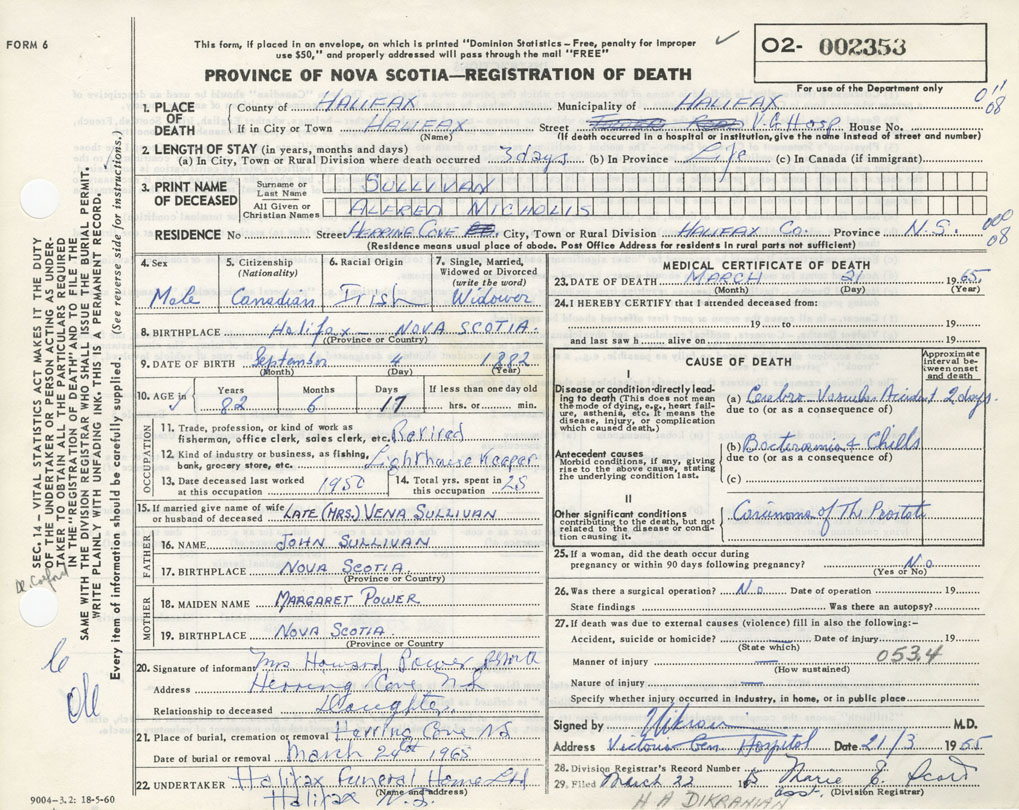 FORM 6
This form, if placed in an envelope, on which is printed "Dominion Statistics – Free, penalty for improper
use $50," and properly addressed will pass through the mail "FREE"
O2- 002353
PROVINCE OF NOVA SCOTIA—REGISTRATION OF DEATH
For use of the Department only
1. PLACE OF DEATH County of HALIFAX Municipality of HALIFAX
If in City or Town HALIFAX Street V.G. Hosp House No.
(Name) (If death occurred in a hospital or institution, give the name instead of street and number)
2. LENGTH OF STAY (in years, months and days)
(a) In City, Town or Rural Division where death occurred 3 days (b) In Province Life (c) In Canada (if immigrant)
3. PRINT NAME OF DECEASED Surname or Last Name SULLIVAN
All Given or Christian Names ALFRED NICHOLIS
RESIDENCE No Street HERRING COVE City, Town or Rural Division HALIFAX Co. Province N.S.
(Residence means usual place of abode. Post Office Address for residents in rural parts not sufficient)
4. Sex 5. Citizenship (Nationality) 6. Racial Origin 7. Single, Married, Widowed or Divorced (write the word)
Male Canadian Irish Widower
8. BIRTHPLACE Halifax – NOVA SCOTIA.
(Province or Country)
9. DATE OF BIRTH September 4 1882
(Month) (Day) (Year)
10. AGE in Years Months Days If less than one day old
82 6 17 hrs. or min.
OCCUPATION
11. Trade, profession, or kind of work as
fisherman, office clerk, sales clerk, etc. Retired
12. Kind of industry or business, as fishing,
bank, grocery store, etc. Lighthouse Keeper
13. Date deceased last worked at this occupation 1950 14. Total yrs. spent in this occupation 25
15. If married give name of wife
or husband of deceased LATE (MRS.) VENA SULLIVAN
FATHER
16. NAME JOHN SULLIVAN
17. BIRTHPLACE NOVA SCOTIA
(Province or Country)
MOTHER
18. MAIDEN NAME MARGARET POWER
19. BIRTHPLACE NOVA SCOTIA
(Province or Country
20. Signature of informant Mrs Howard Power
Address Herring Cove N.S.
Relationship to deceased Daughter
21. Place of burial, cremation or removal Herring Cove NS
Date of burial or removal March 24 1965
22. UNDERTAKER Halifax Funeral Home Ltd
(Name and address)
Halifax N.S.
9004–3.2: 18-5-60
MEDICAL CERTIFICATE OF DEATH
23. DATE OF DEATH MARCH 21 1965
(Month) (Day) (Year)
24. I HEREBY CERTIFY that I attended deceased from:
19 to 19
and last saw h alive on 19
CAUSE OF DEATH
Approximate interval between onset and death
I
Disease or condition directly leading to death (This does not mean the mode of dying, e.g., heart failure, asthenia, etc. It means the disease, injury, or complication which caused death.)
(a) Cerebro Vascular Accident 2 days.
due to (or as a consequence of)
Antecedent causes
Morbid conditions, if any, giving rise to the above cause, stating the underlying condition last.
(b) & Chills
due to (or as a consequence of)
(c)
II
Other significant conditions
contributing to the death, but not related to the disease or condition causing it.
Carcinoma of The Prostate
25. If a woman, did the death occur during
pregnancy or within 90 days following pregnancy? No
(Yes or No)
26. Was there a surgical operation? No Date of operation 19
State findings Was there an autopsy?
27. If death was due to external causes (violence) fill in also the following:–
Accident, suicide or homicide? Date of injury 19
(State which)
Manner of injury 053.4
(How sustained)
Nature of injury
Specify whether injury occurred in industry, in home, or in public place
Signed by M.D.
Address Victoria Gen Hospital Date 21/3 1965
28. Division Registrar's Record Number
29. Filed March 22 Marie
asst. (Division Registrar)
H A DIKRANIAN
SEC. 14 – VITAL STATISTICS ACT MAKES IT THE DUTY
OF THE UNDERTAKER OR PERSON ACTING AS UNDER-
TAKER TO OBTAIN ALL THE PARTICULARS REQUIRED
IN THE "REGISTRATION OF DEATH" AND TO FILE THE
SAME WITH THE DIVISION REGISTRAR WHO SHALL ISSUE THE BURIAL PERMIT.
WRITE PLAINLY WITH UNFADING INK. THIS IS A PERMANENT RECORD.
Every item of information should be carefully supplied. (See reverse side for instructions.)